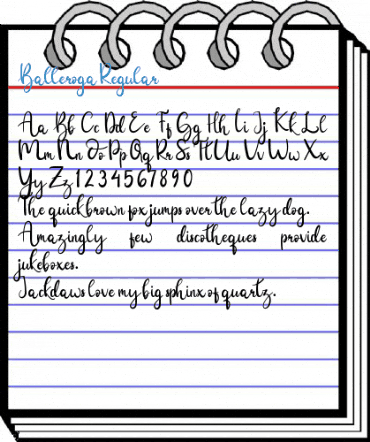 Balleroga Regular
Aa Bb Cc Dd Ee Ff Gg Hh Ii Jj Kk Ll
Mm Nn Oo Pp Qq Rr Ss Tt Uu Vv Ww Xx
Yy Zz 1 2 3 4 5 6 7 8 9 0
The quick brown fox jumps over the lazy dog.
Amazingly few discotheques provide
jukeboxes.
Jackdaws love my big sphinx of quartz.